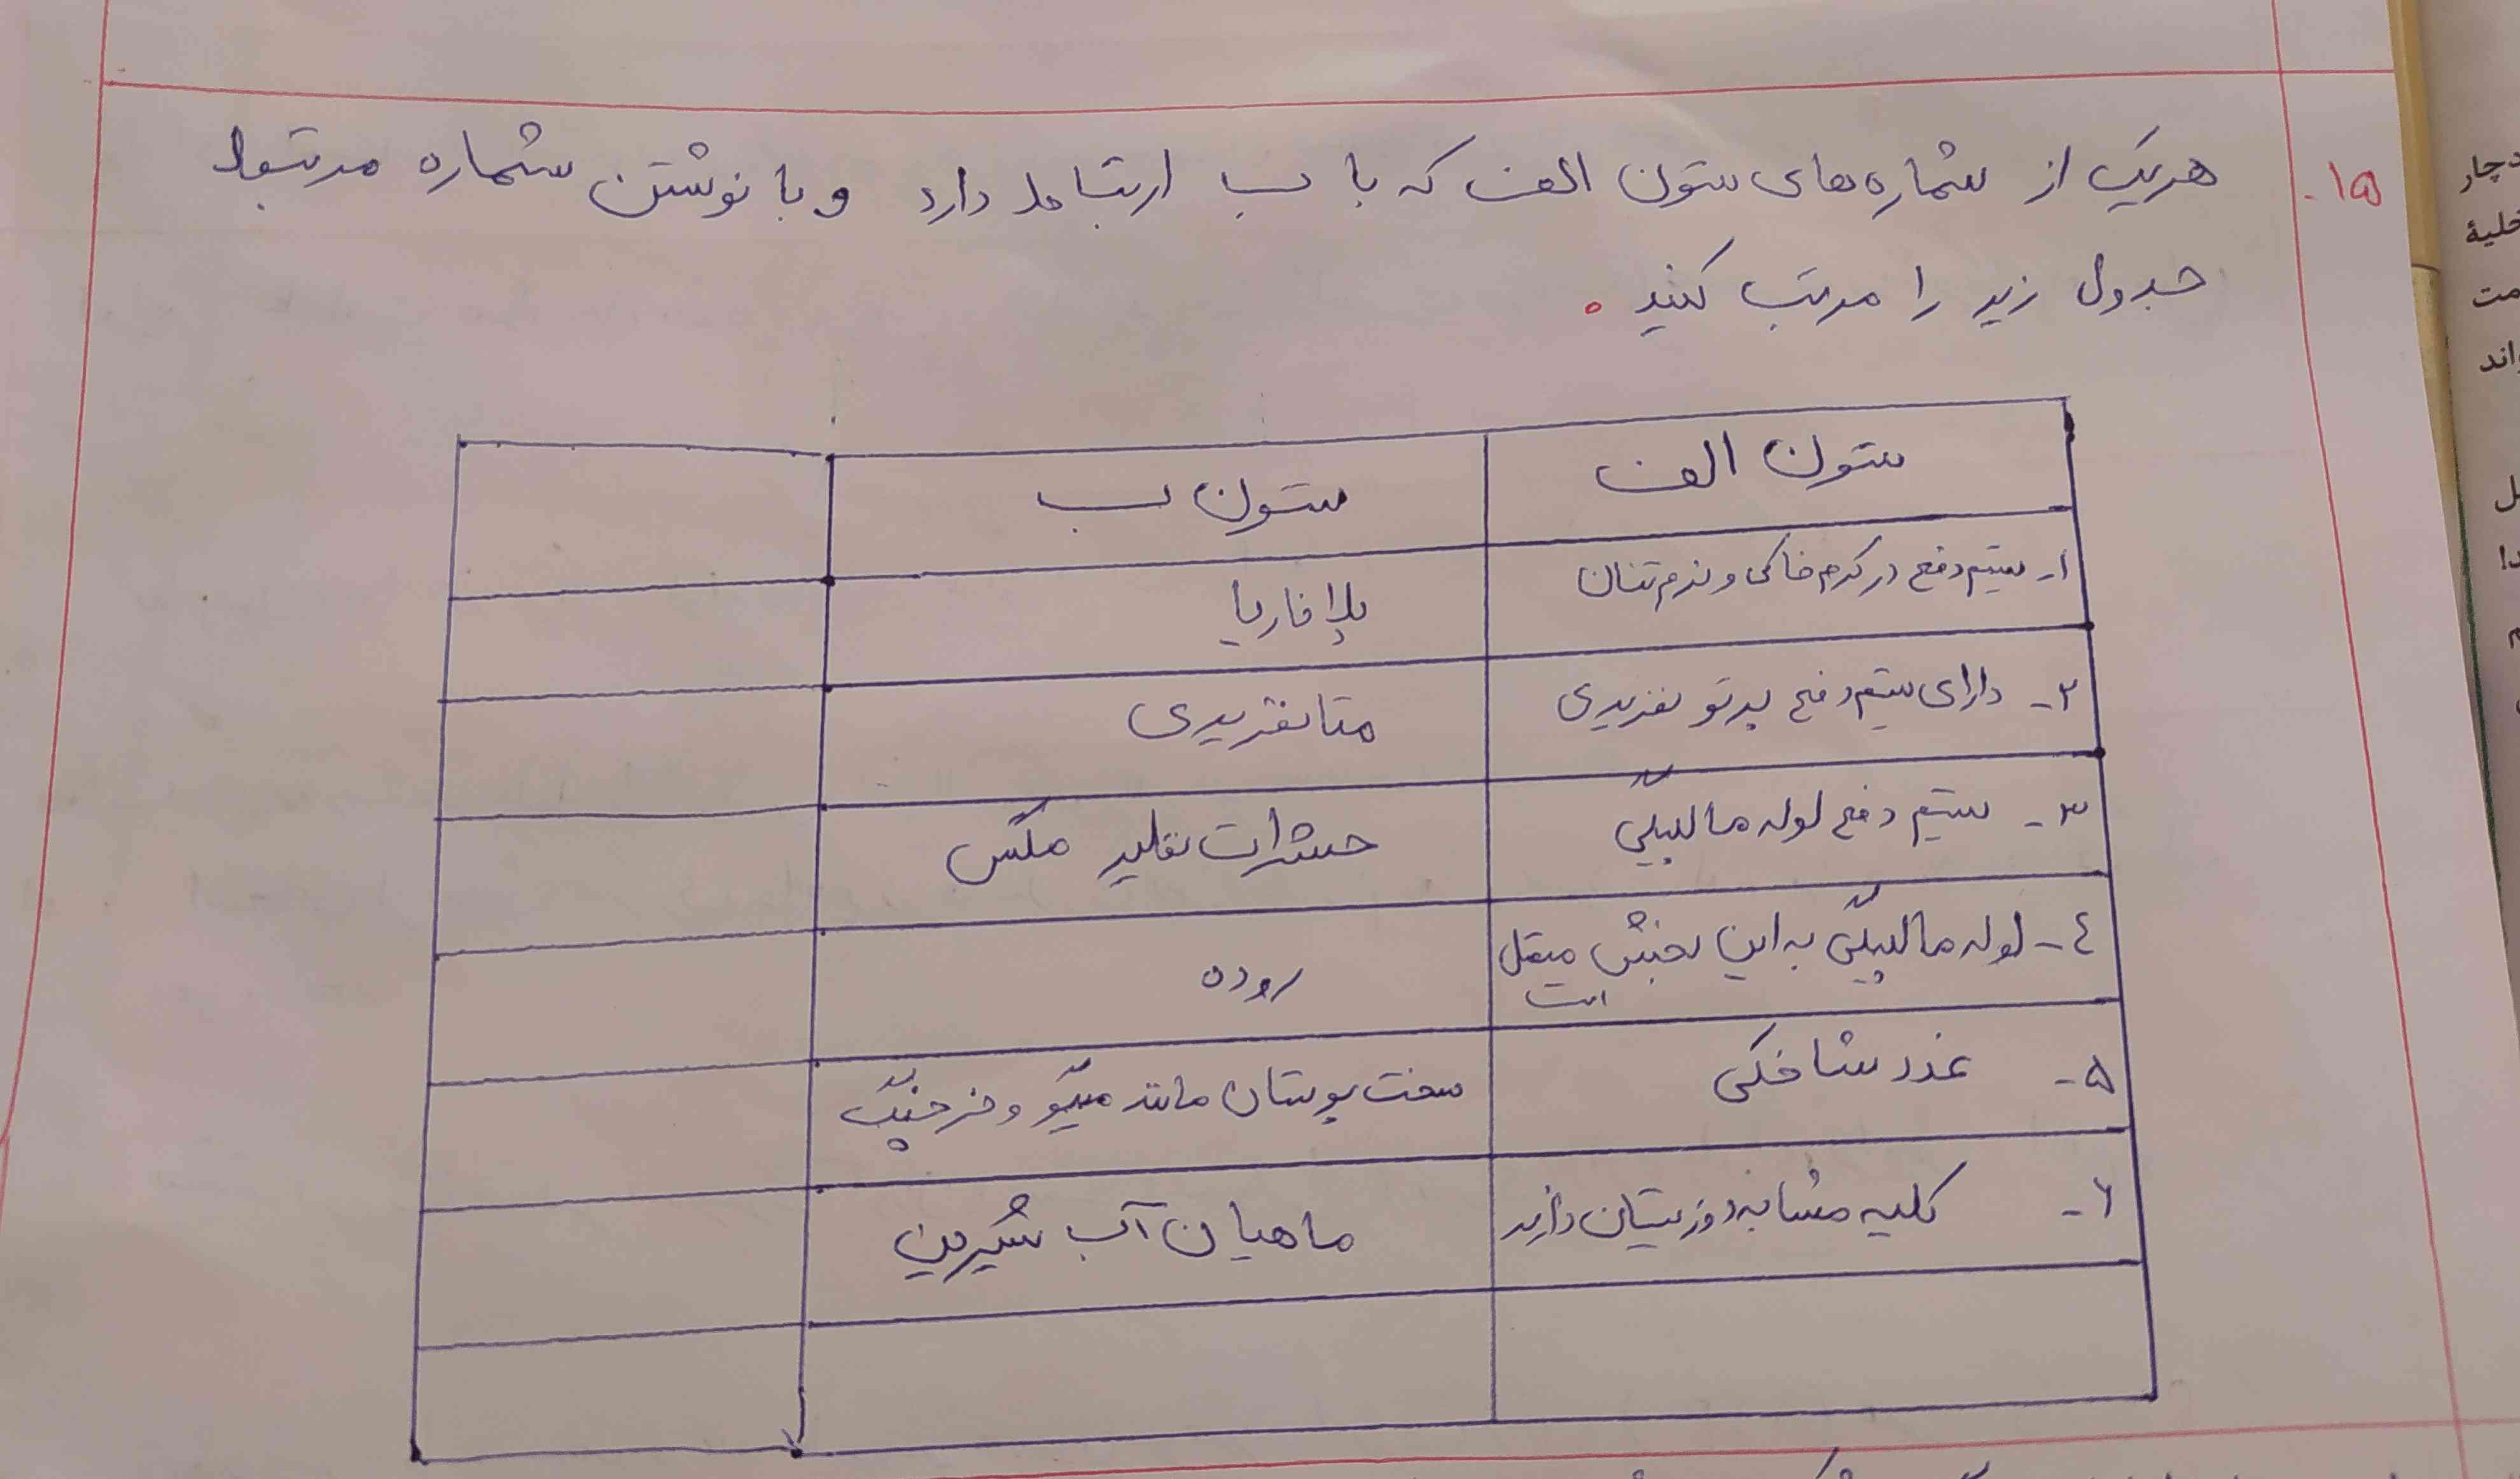 ۱۵- هریک از شماره‌های ستون الف که با ب ارتباط دارد و با نوشتن شماره مرتبط
جدول زیر را مرتب کنید.
ستون الف ستون ب
۱- سیتم دفع در کرم خاکی و نرم تنان پلافاریا
۲- دارای سیتم دفع پرتو نفریدی متانفریدی
۳- سیتم دفع لوله مالپیگی حشرات نظیر مگس
۴- لوله مالپیگی به این بخش متصل است روده
۵- غدد شاخکی سخت پوستان مانند میگو و خرچنگ
۶- کلیه مشابه دوزیستان دارند ماهیان آب شیرین
دچار
خلیهٔ
مت
واند